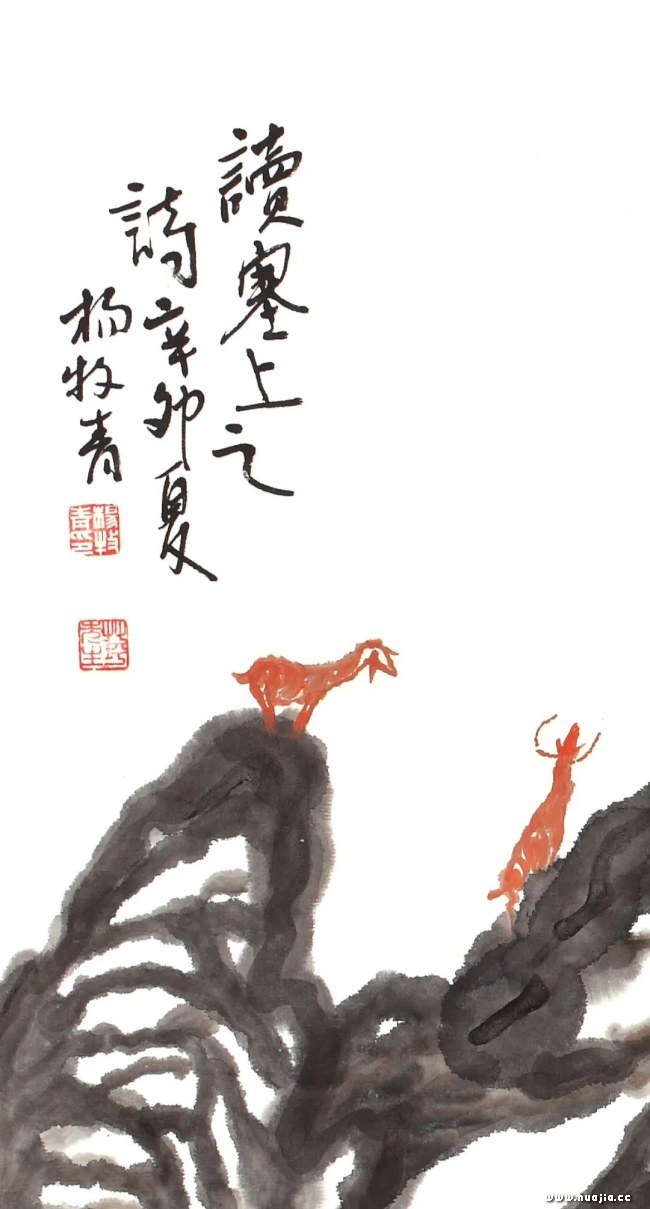 讀塞上之
詩辛卯夏
杨牧青
楊牧
青印
www.huajia.cc